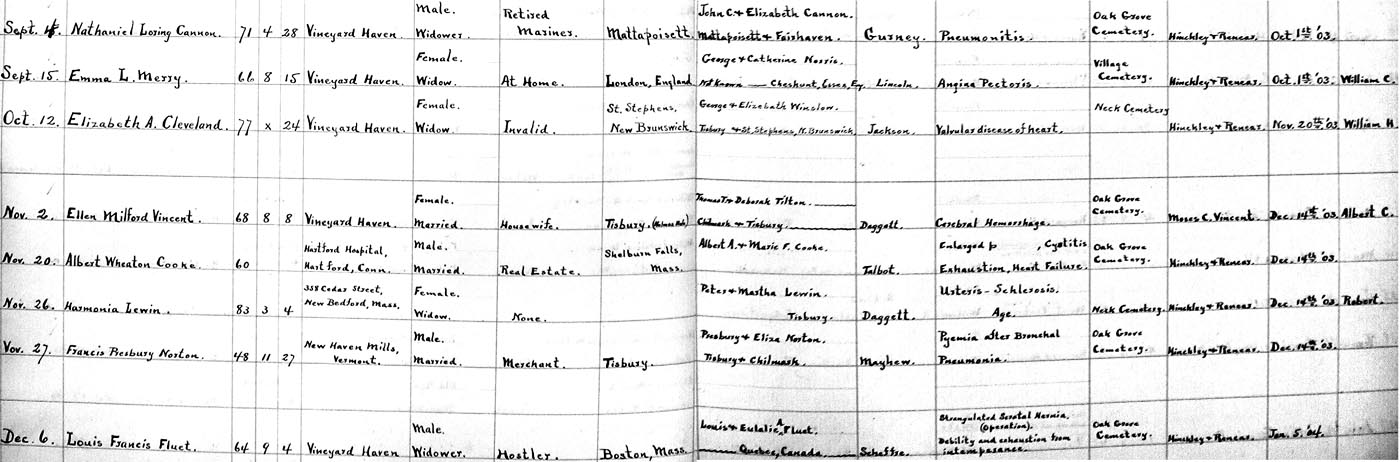 Male. Retired John C. & Elizabeth Cannon. Oak Grove
Sept. Nathaniel Loring Cannon. 71 4 28 Vineyard Haven. Widower. Mariner. Mattapoisett. Mattapoisett & Fairhaven. Gurney. Pneumonitis. Cemetery. Hinckley & Renear. Oct. 1st '03.
Female. George & Catherine Norris. Village
Sept. 15. Emma L. Merry. 66 8 15 Vineyard Haven. Widow. At Home. London, England Not Known — Cheshunt, Essex, Eng. Lincoln. Angina Pectoris. Cemetery. Hinckley & Renear. Oct. 1st '03. William C.
Female. St. Stephens, George & Elizebath Winslow. Neck Cemetery
Oct. 12. Elizabeth A. Cleveland. 77 x 24 Vineyard Haven. Widow. Invalid. New Brunswick. Tisbury & St. Stephens, N. Brunswick. Jackson. Valvular disease of heart. Hinckley & Renear. Nov. 20th '03 William H.
Female. Thomas & Deborah Tilton. Oak Grove
Nov. 2. Ellen Milford Vincent. 68 8 8 Vineyard Haven. Married. Housewife. Tisbury. Chilmark & Tisbury. Daggett. Cerebral Hemorrhage. Cemetery. Moses C. Vincent. Dec. 14th '03. Albert C.
Hartford Hospital, Male. Shelburn Falls, Albert A. & Marie F. Cooke. Enlarged p , Cystitis Oak Grove
Nov. 20. Albert Wheaton Cooke. 60 Hartford, Conn. Married. Real Estate. Mass. Talbot. Exhaustion, Heart Failure. Cemetery. Hinckley & Renear. Dec. 14th '03.
338 Cedar Street, Female. Peter & Martha Lewin. Usteris - Schlerosis.
Nov. 26. Harmonia Lewin. 83 3 4 New Bedford, Mass. Widow. None. Tisbury. Daggett. Age. Neck Cemetery. Hinckley & Renear. Dec. 14th '03. Robert.
New Haven Mills, Male. Presbury & Eliza Norton. Pyemia after Bronchal Oak Grove
Nov. 27. Francis Presbury Norton. 48 11 27 Vermont. Married. Merchant. Tisbury. Tisbury & Chilmark. Mayhew. Pneumonia. Cemetery. Hinckley & Renear. Dec. 14th '03.
Male. Louis & Eulalie A Fluet. Strangulated Scrotal Hernia, (Operation). Oak Grove
Dec. 6. Louis Francis Fluet. 64 9 4 Vineyard Haven Widower. Hostler. Boston, Mass. Quebec, Canada. Debility and exhaustion from intemperance. Cemetery. Hinckley & Renear. Jan. 5. '04.